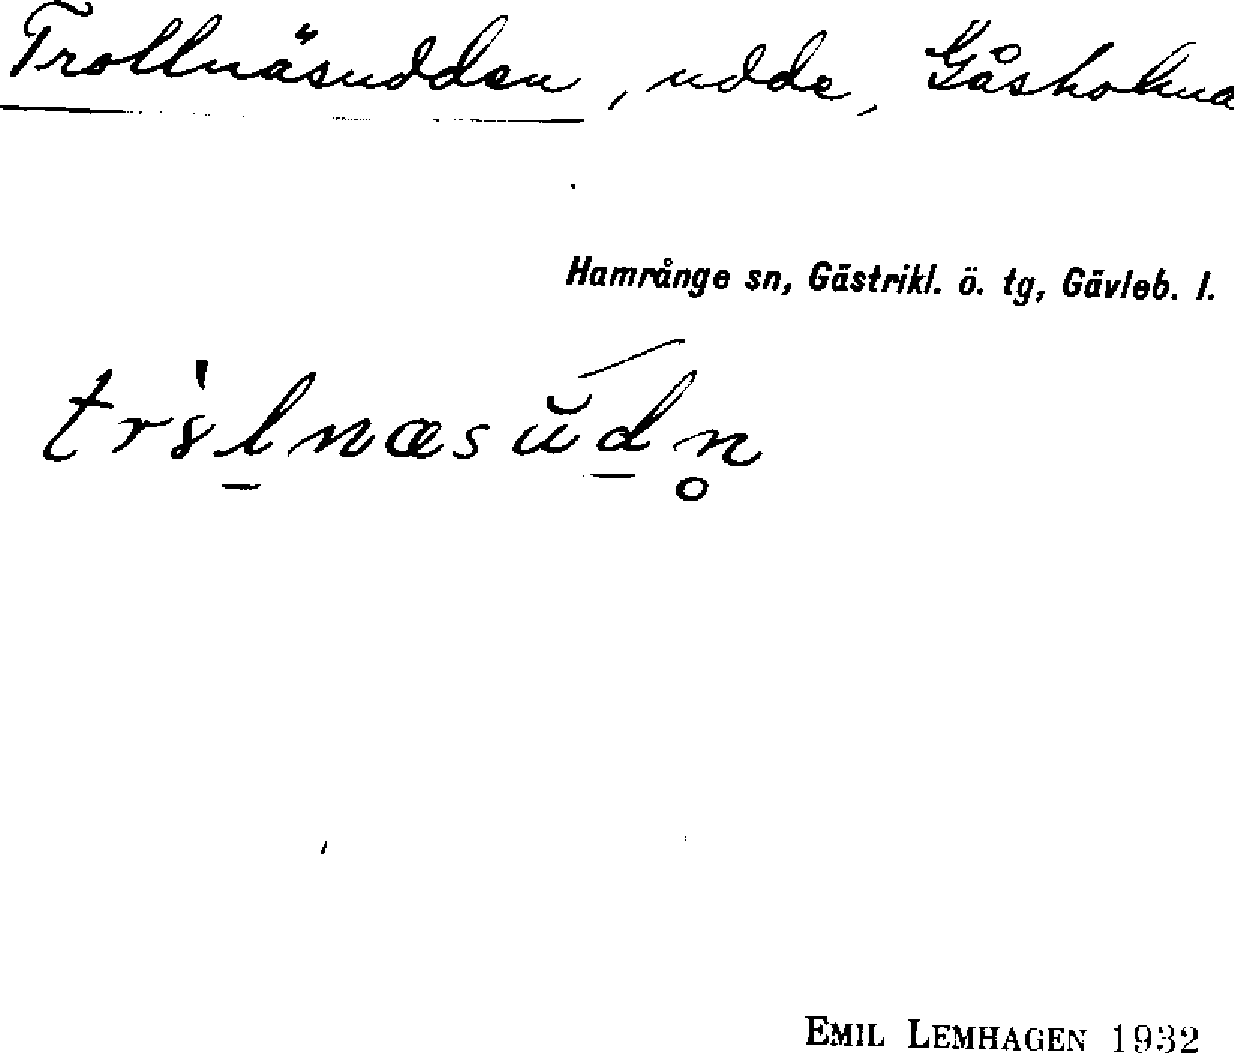 Trollnäsudden, udde, Gåsholma
Hamrånge sn, Gästrikl. ö. tg, Gävleb. l.
EMIL LEMHAGEN 1932